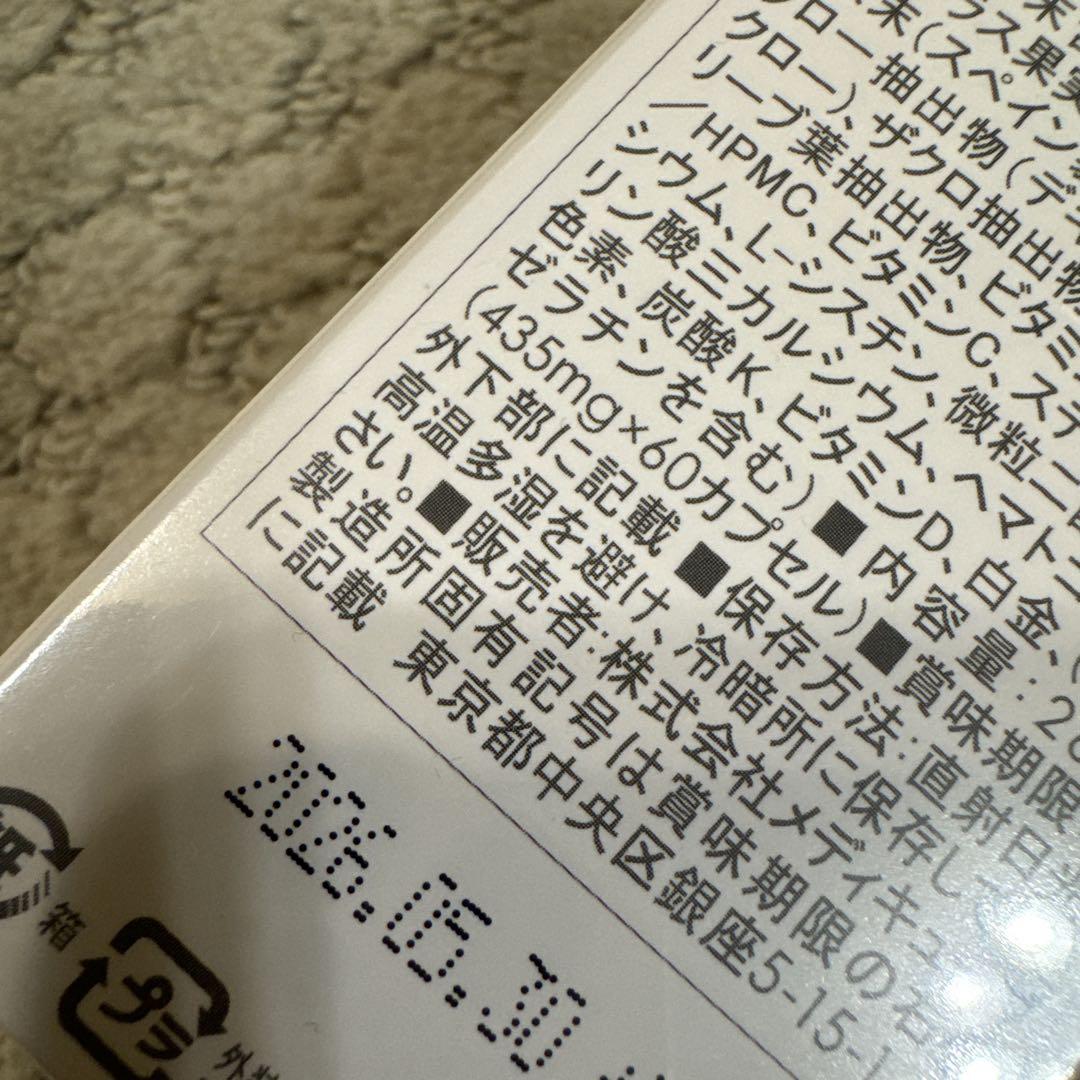 末
ラス果実
末(スペイン
ロー抽出物(デ
クロー)、ザクロ抽出物
リーブ葉抽出物、ビタミ
/HPMC、ビタミンC、ステ
シウム、L-シスチン、微粒二
リン酸三カルシウム、ヘマト
色素、炭酸K、ビタミンD、白金、(
ゼラチンを含む) ■内容量:26
(435mg×60カプセル) ■賞味期限
外下部に記載 ■保存方法:直射日
高温多湿を避け、冷暗所に保存し
さい。■販売者:株式会社メディキュ
東京都中央区銀座5-15-1
製造所固有記号は賞味期限の右
に記載
2026.05.30
紙
箱
プラ
外装